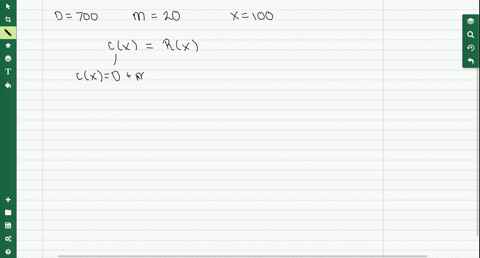 D = 700 m = 20 x = 100
c(x) = R(x)
c(x) = D + m